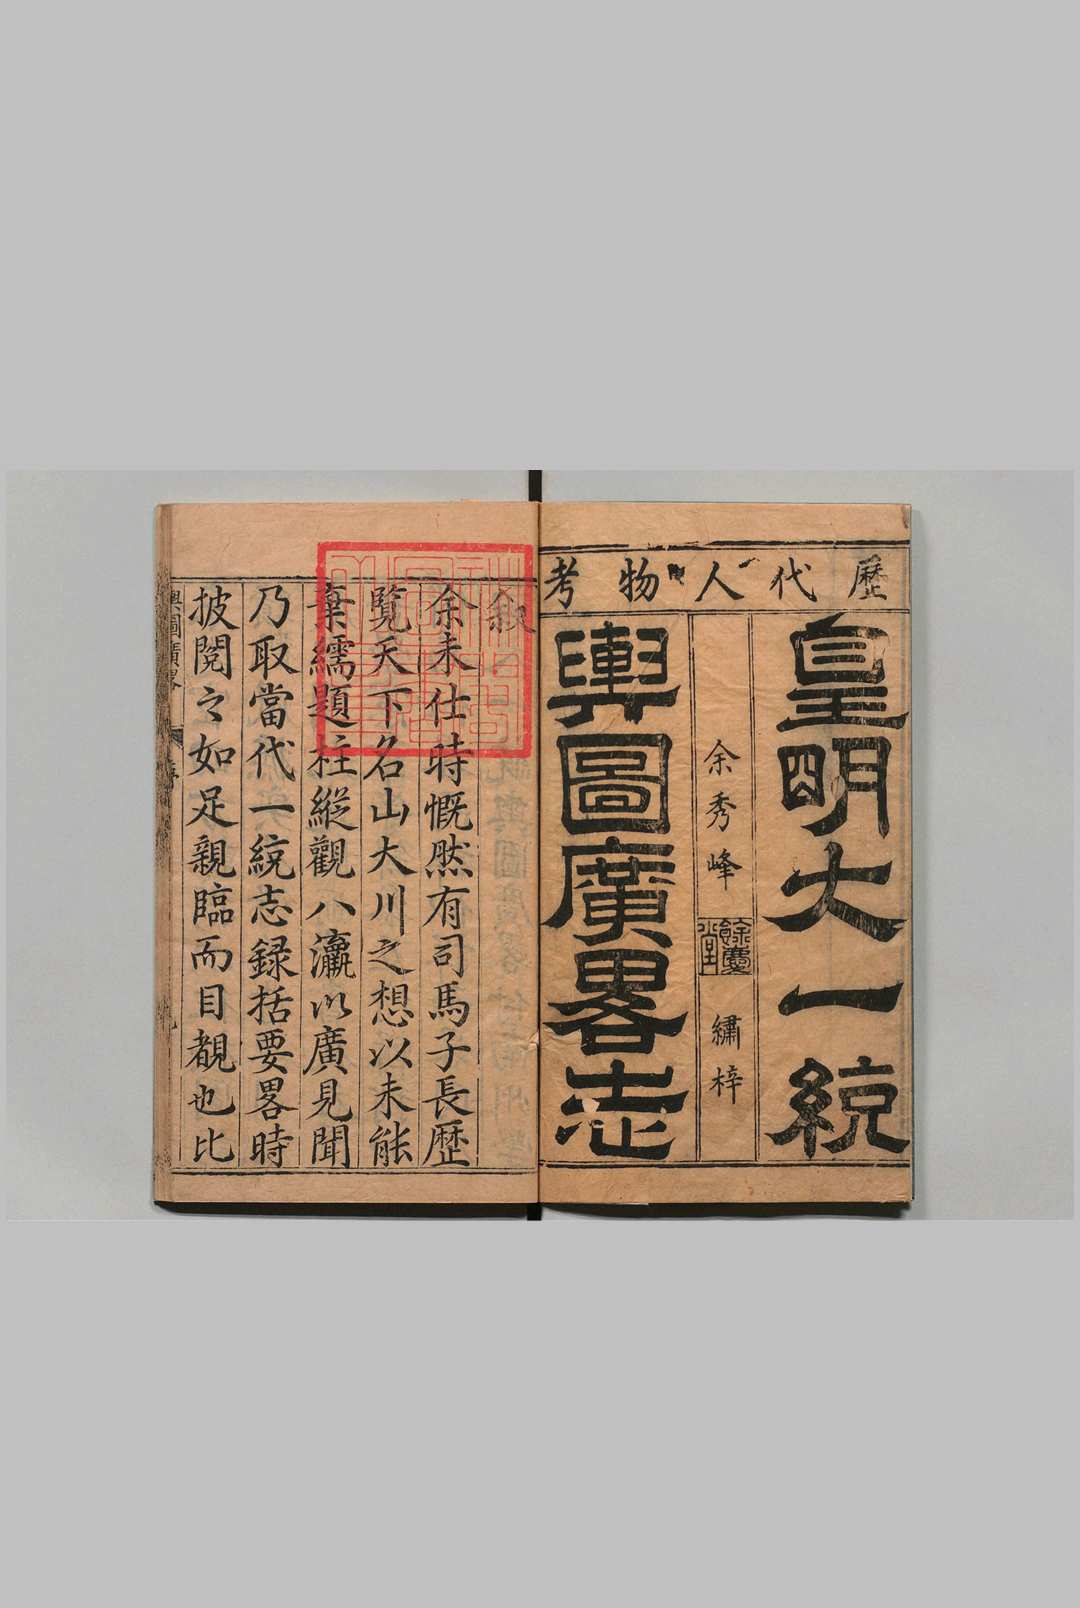 歷代人物考
皇明大一統
余秀峰
餘慶堂
繡梓
輿圖廣畧志
叙
余未仕時慨然有司馬子長歷
覽天下名山大川之想以未能
棄繻題柱縱觀八瀛以廣見聞
乃取當代一統志録括要畧時
披閱之如足親臨而目覩也比
輿圖廣畧
序